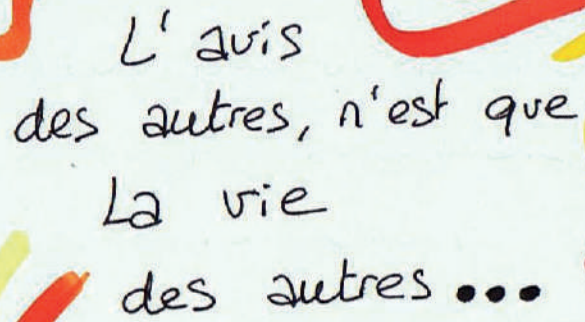 L'avis
des autres, n'est que
La vie
des autres...